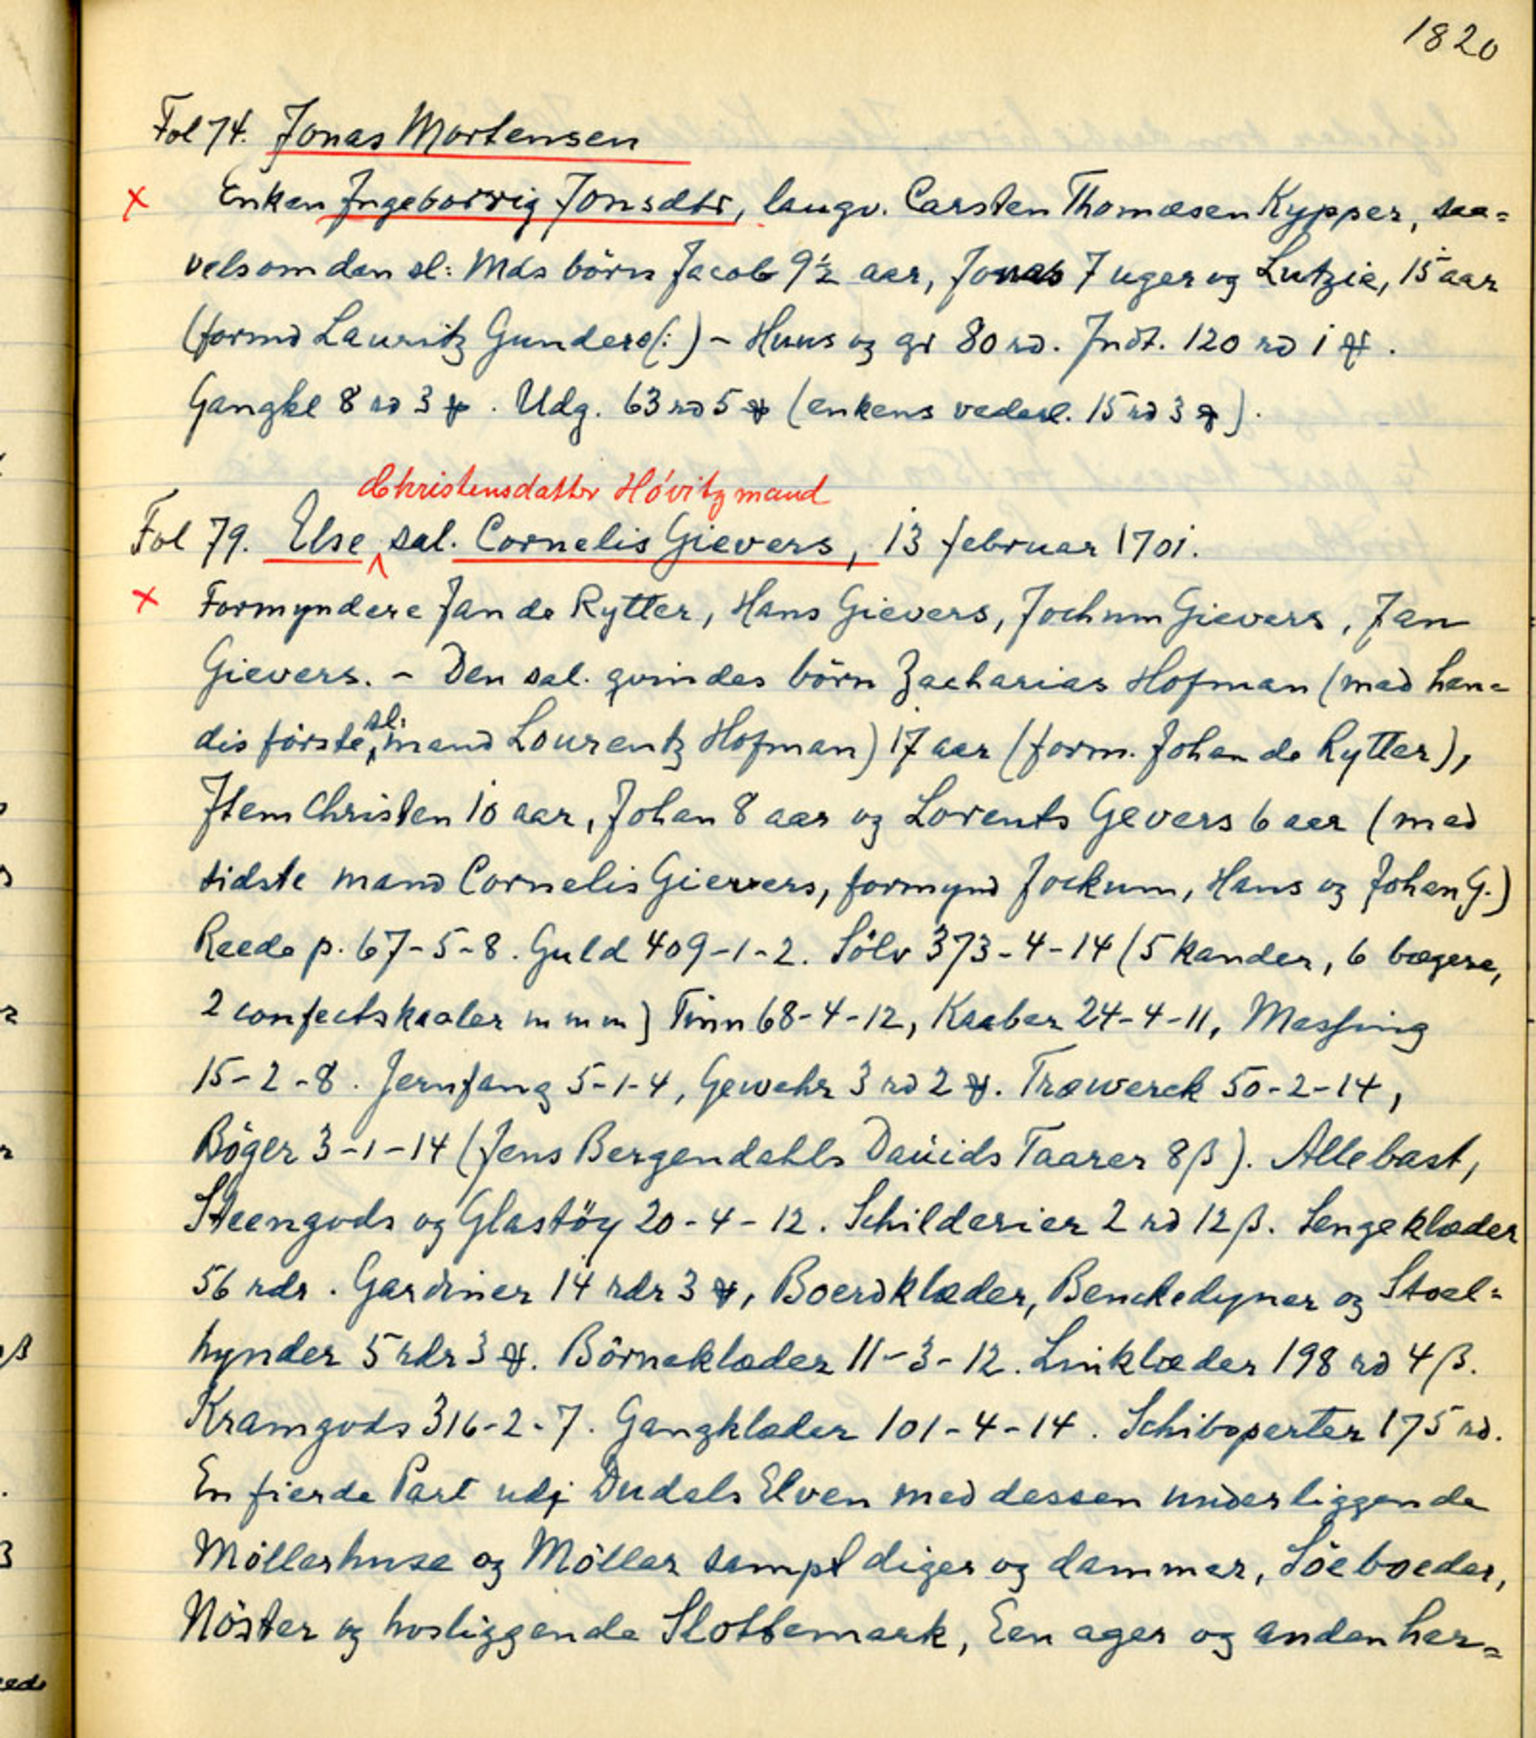 1820
Fol 74. Jonas Mortensen
x Enken Jngeborrig Jonsdtr, laugv. Carsten Thomæsen Kypper, saa=
velsom den sl: Mds börn Jacob 9½ aar, Jonas 7 uger og Lutzie, 15 aar
(formd Lauritz Gunders(:) – Huus og gr 80 rd. Jndt. 120 rd 1 ꝟ.
Gangkl 8 rd 3 ꝟ. Udg. 63 rd 5 ꝟ (enkens vederl. 15 rd 3 ꝟ).
Christensdatter Hövitzmand
Fol 79. Else ^ sal. Cornelis Gievers, 13 februar 1701.
x Formyndere Jan de Rytter, Hans Gievers, Jochum Gievers, Jan
Gievers. – Den sal. qvindes börn Zacharias Hofman (med hen=
sl:
dis förste ^ mand Lourentz Hofman) 17 aar (form. Johan de Rytter),
Jtem Christen 10 aar, Johan 8 aar og Lorents Gevers 6 aar (med
sidste mand Cornelis Gievers, formynd Jockum, Hans og Johan G.)
Reede p. 67-5-8. Guld 409-1-2. Sölv 373-4-14 (5 kander, 6 bægere,
2 confectskaaler m m m) Tinn 68-4-12, Kaaber 24-4-11, Messing
15-2-8. Jernfang 5-1-4, Gewehr 3 rd 2 ꝟ. Træwerck 50-2-14,
Böger 3-1-14 (Jens Bergendahls Dauids Taarer 8 β). Allebast,
Steengods og Glastöy 20-4-12. Schilderier 2 rd 12 β. Sengeklæder
56 rdr. Gardiner 14 rdr 3 ꝟ, Boerdklæder, Benckedyner og Stoel=
hynder 5 rdr 3 ꝟ. Börneklæder 11-3-12. Linklæder 198 rd 4 β.
Kramgods 316-2-7. Gangklæder 101-4-14. Schibsparter 175 rd.
En fierde Part udj Dudals Elven med dessen underliggende
Möllerhuse og Möller sampt diger og dammer, Söeboeder,
Nöster og hosliggende Slottemark, Een ager og anden her=